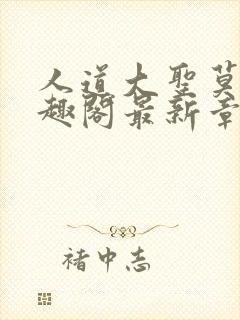 人道大圣莫
趣阁最新章
褚中志